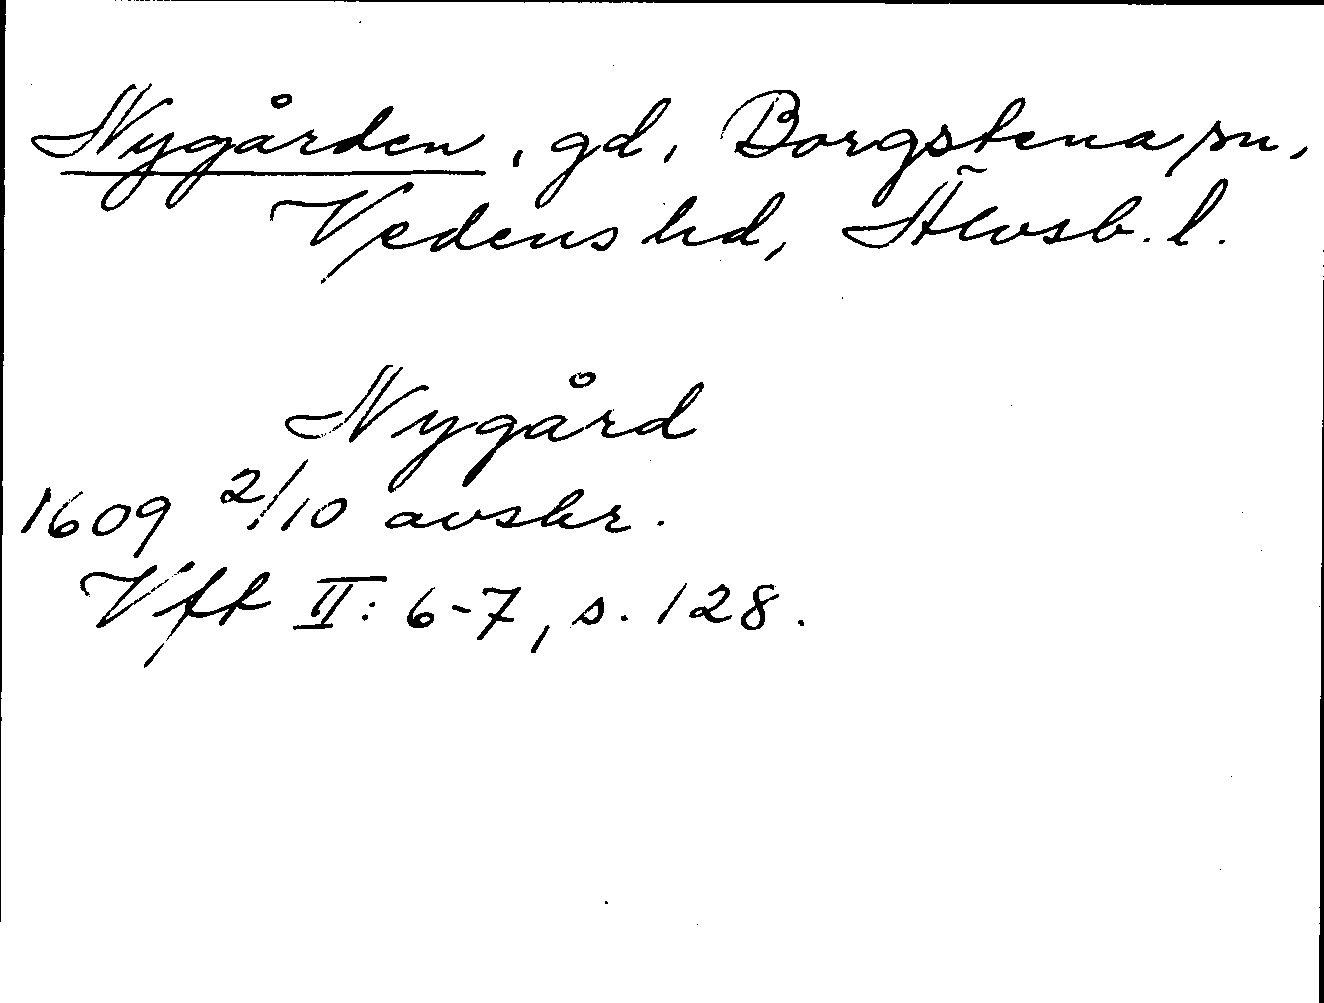 Nygården, gd, Borgstena sn,
Vedens hd, Älvsb. l.
Nygård
1609 2/10 avskr.
Vft II: 6-7, s. 128.